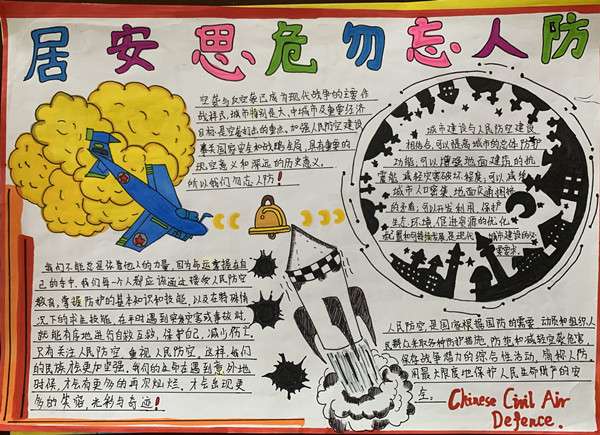 居安思危勿忘人防
空袭与反空袭已成为现代战争的主要作
战样式,城市特别是大、中城市及重要经济
目标是空袭打击的重点,加强人民防空建设
事关国家安全和战略全局,具有重要的
现实意义和深远的历史意义,
所以我们勿忘人防!
城市建设与人民防空建设
相结合,可以提高城市的总体防护
功能,可以增强地面建筑的抗
震能,减轻灾害破坏程度,可以减缓
城市人口密集、地面交通拥挤
的矛盾,可以开发利用、保护
生态环境,促进资源的优化
配置和可持续发展,是现代城市建设的必
要要求。
我们不能总是依靠他人的力量,因为命运掌握在自
己的手中。我们每一个人都应该通过接受人民防空
教育,掌握防护的基本知识和技能,以及在特殊情
况下的求生技能,在未来遇到空袭灾害或事故时,
就能有序地进行自救互救,保护自己,减少伤亡。
只有关注人民防空,重视人民防空,这样,我们
的民族才会更加坚强。我们的生命在遇到意外地
时候,才会有更多的再次灿烂,才会出现更
多的笑容、光彩与奇迹!
人民防空是国家根据国防的需要,动员和组织人
民群众采取各种防护措施,防范和减轻空袭危害,
保存战争潜力的综合性活动,简称人防。
用最大限度地保护人民生命财产的安
全。
Chinese Civil Air
Defence.